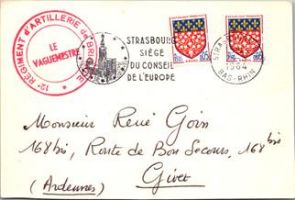 12e REGIMENT D'ARTILLERIE
LE
VAGUEMESTRE
STRASBOURG
SIÈGE
DU CONSEIL
DE L'EUROPE
1964
BAS-RHIN
Monsieur René Goin
168 bis, Route de Bon Secours, 168 bis
Givet
(Ardennes)